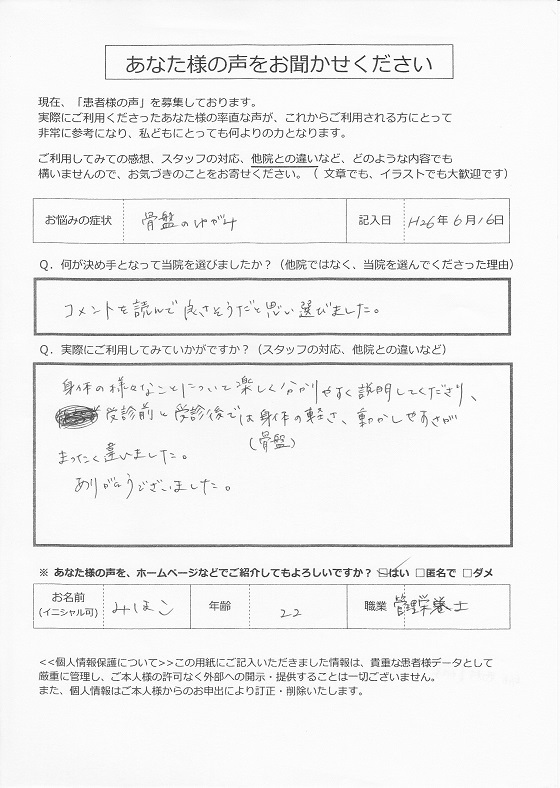 あなた様の声をお聞かせください
現在、「患者様の声」を募集しております。
実際にご利用くださったあなた様の率直な声が、これからご利用される方にとって
非常に参考になり、私どもにとっても何よりの力となります。
ご利用してみての感想、スタッフの対応、他院との違いなど、どのような内容でも
構いませんので、お気づきのことをお寄せください。（ 文章でも、イラストでも大歓迎です）
お悩みの症状 骨盤のゆがみ 記入日 H26年 6月16日
Q．何が決め手となって当院を選びましたか？（他院ではなく、当院を選んでくださった理由）
コメントを読んで良さそうだと思い選びました。
Q．実際にご利用してみていかがですか？（スタッフの対応、他院との違いなど）
身体の様々なことについて楽しく分かりやすく説明してくださり、
受診前と受診後では身体の軽さ、動かしやすさが
(骨盤)
まったく違いました。
ありがとうございました。
※ あなた様の声を、ホームページなどでご紹介してもよろしいですか？ ☑はい □匿名で □ダメ
お名前
(イニシャル可) みほこ 年齢 22 職業 管理栄養士
<<個人情報保護について>>この用紙にご記入いただきました情報は、貴重な患者様データとして
厳重に管理し、ご本人様の許可なく外部への開示・提供することは一切ございません。
また、個人情報はご本人様からのお申出により訂正・削除いたします。